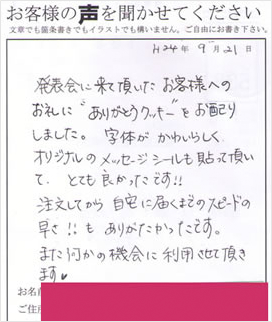 お客様の声を聞かせてください
文章でも箇条書きでもイラストでも構いません。ご自由にお書き下さい。
H24年 9月21日
発表会に来て頂いた お客様への
お礼に“ありがとうクッキー”をお配り
しました。 字体が かわいらしく
オリジナルの メッセージシールも貼って頂い
て、とても良かったです!!
注文してから 自宅に届くまでのスピードの
早さ!!も ありがたかったです。
また何かの機会に利用させて頂き
ます♥
お名前
ご住所